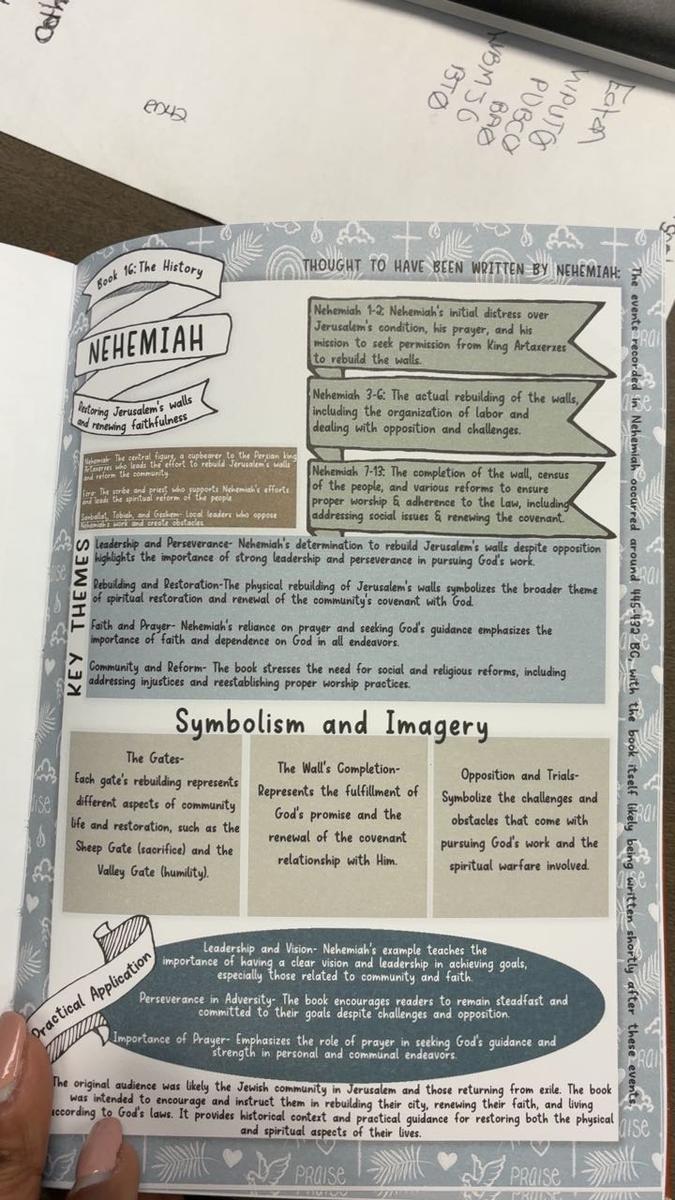 Ectan
WPUTØ
PUBCØ
BAØ
WBMJG
BTØ
Book 16: The History
NEHEMIAH
Restoring Jerusalem's walls
and renewing faithfulness
THOUGHT TO HAVE BEEN WRITTEN BY NEHEMIAH:
Nehemiah 1-2: Nehemiah's initial distress over
Jerusalem's condition, his prayer, and his
mission to seek permission from King Artaxerxes
to rebuild the walls.
Nehemiah 3-6: The actual rebuilding of the walls,
including the organization of labor and
dealing with opposition and challenges.
Nehemiah 7-13: The completion of the wall, census
of the people, and various reforms to ensure
proper worship & adherence to the Law, including
addressing social issues & renewing the covenant.
Nehemiah- The central figure, a cupbearer to the Persian king
Artaxerxes who leads the effort to rebuild Jerusalem's walls
and reform the community.
Ezra- The scribe and priest who supports Nehemiah's efforts
and leads the spiritual reform of the people
Sanballat, Tobiah, and Geshem- Local leaders who oppose
Nehemiah's work and create obstacles
KEY THEMES
Leadership and Perseverance- Nehemiah's determination to rebuild Jerusalem's walls despite opposition
highlights the importance of strong leadership and perseverance in pursuing God's work.
Rebuilding and Restoration-The physical rebuilding of Jerusalem's walls symbolizes the broader theme
of spiritual restoration and renewal of the community's covenant with God.
Faith and Prayer- Nehemiah's reliance on prayer and seeking God's guidance emphasizes the
importance of faith and dependence on God in all endeavors.
Community and Reform- The book stresses the need for social and religious reforms, including
addressing injustices and reestablishing proper worship practices.
Symbolism and Imagery
The Gates-
Each gate's rebuilding represents
different aspects of community
life and restoration, such as the
Sheep Gate (sacrifice) and the
Valley Gate (humility).
The Wall's Completion-
Represents the fulfillment of
God's promise and the
renewal of the covenant
relationship with Him.
Opposition and Trials-
Symbolize the challenges and
obstacles that come with
pursuing God's work and the
spiritual warfare involved.
Practical Application
Leadership and Vision- Nehemiah's example teaches the
importance of having a clear vision and leadership in achieving goals,
especially those related to community and faith.
Perseverance in Adversity- The book encourages readers to remain steadfast and
committed to their goals despite challenges and opposition.
Importance of Prayer- Emphasizes the role of prayer in seeking God's guidance and
strength in personal and communal endeavors.
The original audience was likely the Jewish community in Jerusalem and those returning from exile. The book
was intended to encourage and instruct them in rebuilding their city, renewing their faith, and living
according to God's laws. It provides historical context and practical guidance for restoring both the physical
and spiritual aspects of their lives.
The events recorded in Nehemiah occurred around 445-432 BC, with the book itself likely being written shortly after these events.
PRAISE
PRAISE